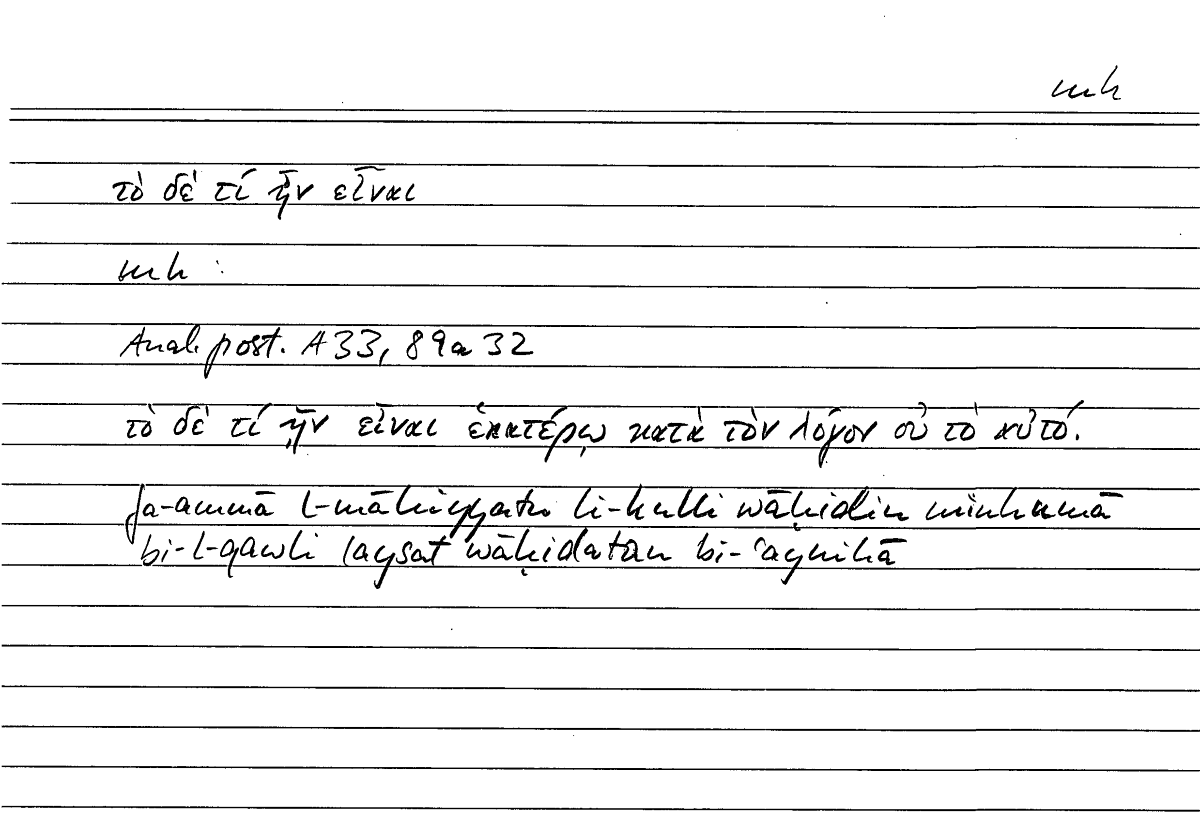 mh
τὸ δέ τί ἦν εἶναι
mh :
Anal. post. A 33, 89a 32
τὸ δέ τί ἦν εἶναι ἑκατέρῳ κατὰ τὸν λόγον οὐ τὸ αὐτό.
fa-ammā l-māhiyyatu li-kulli wāḥidin minhumā
bi-l-qawli laysat wāḥidatan bi-ʿaynihā